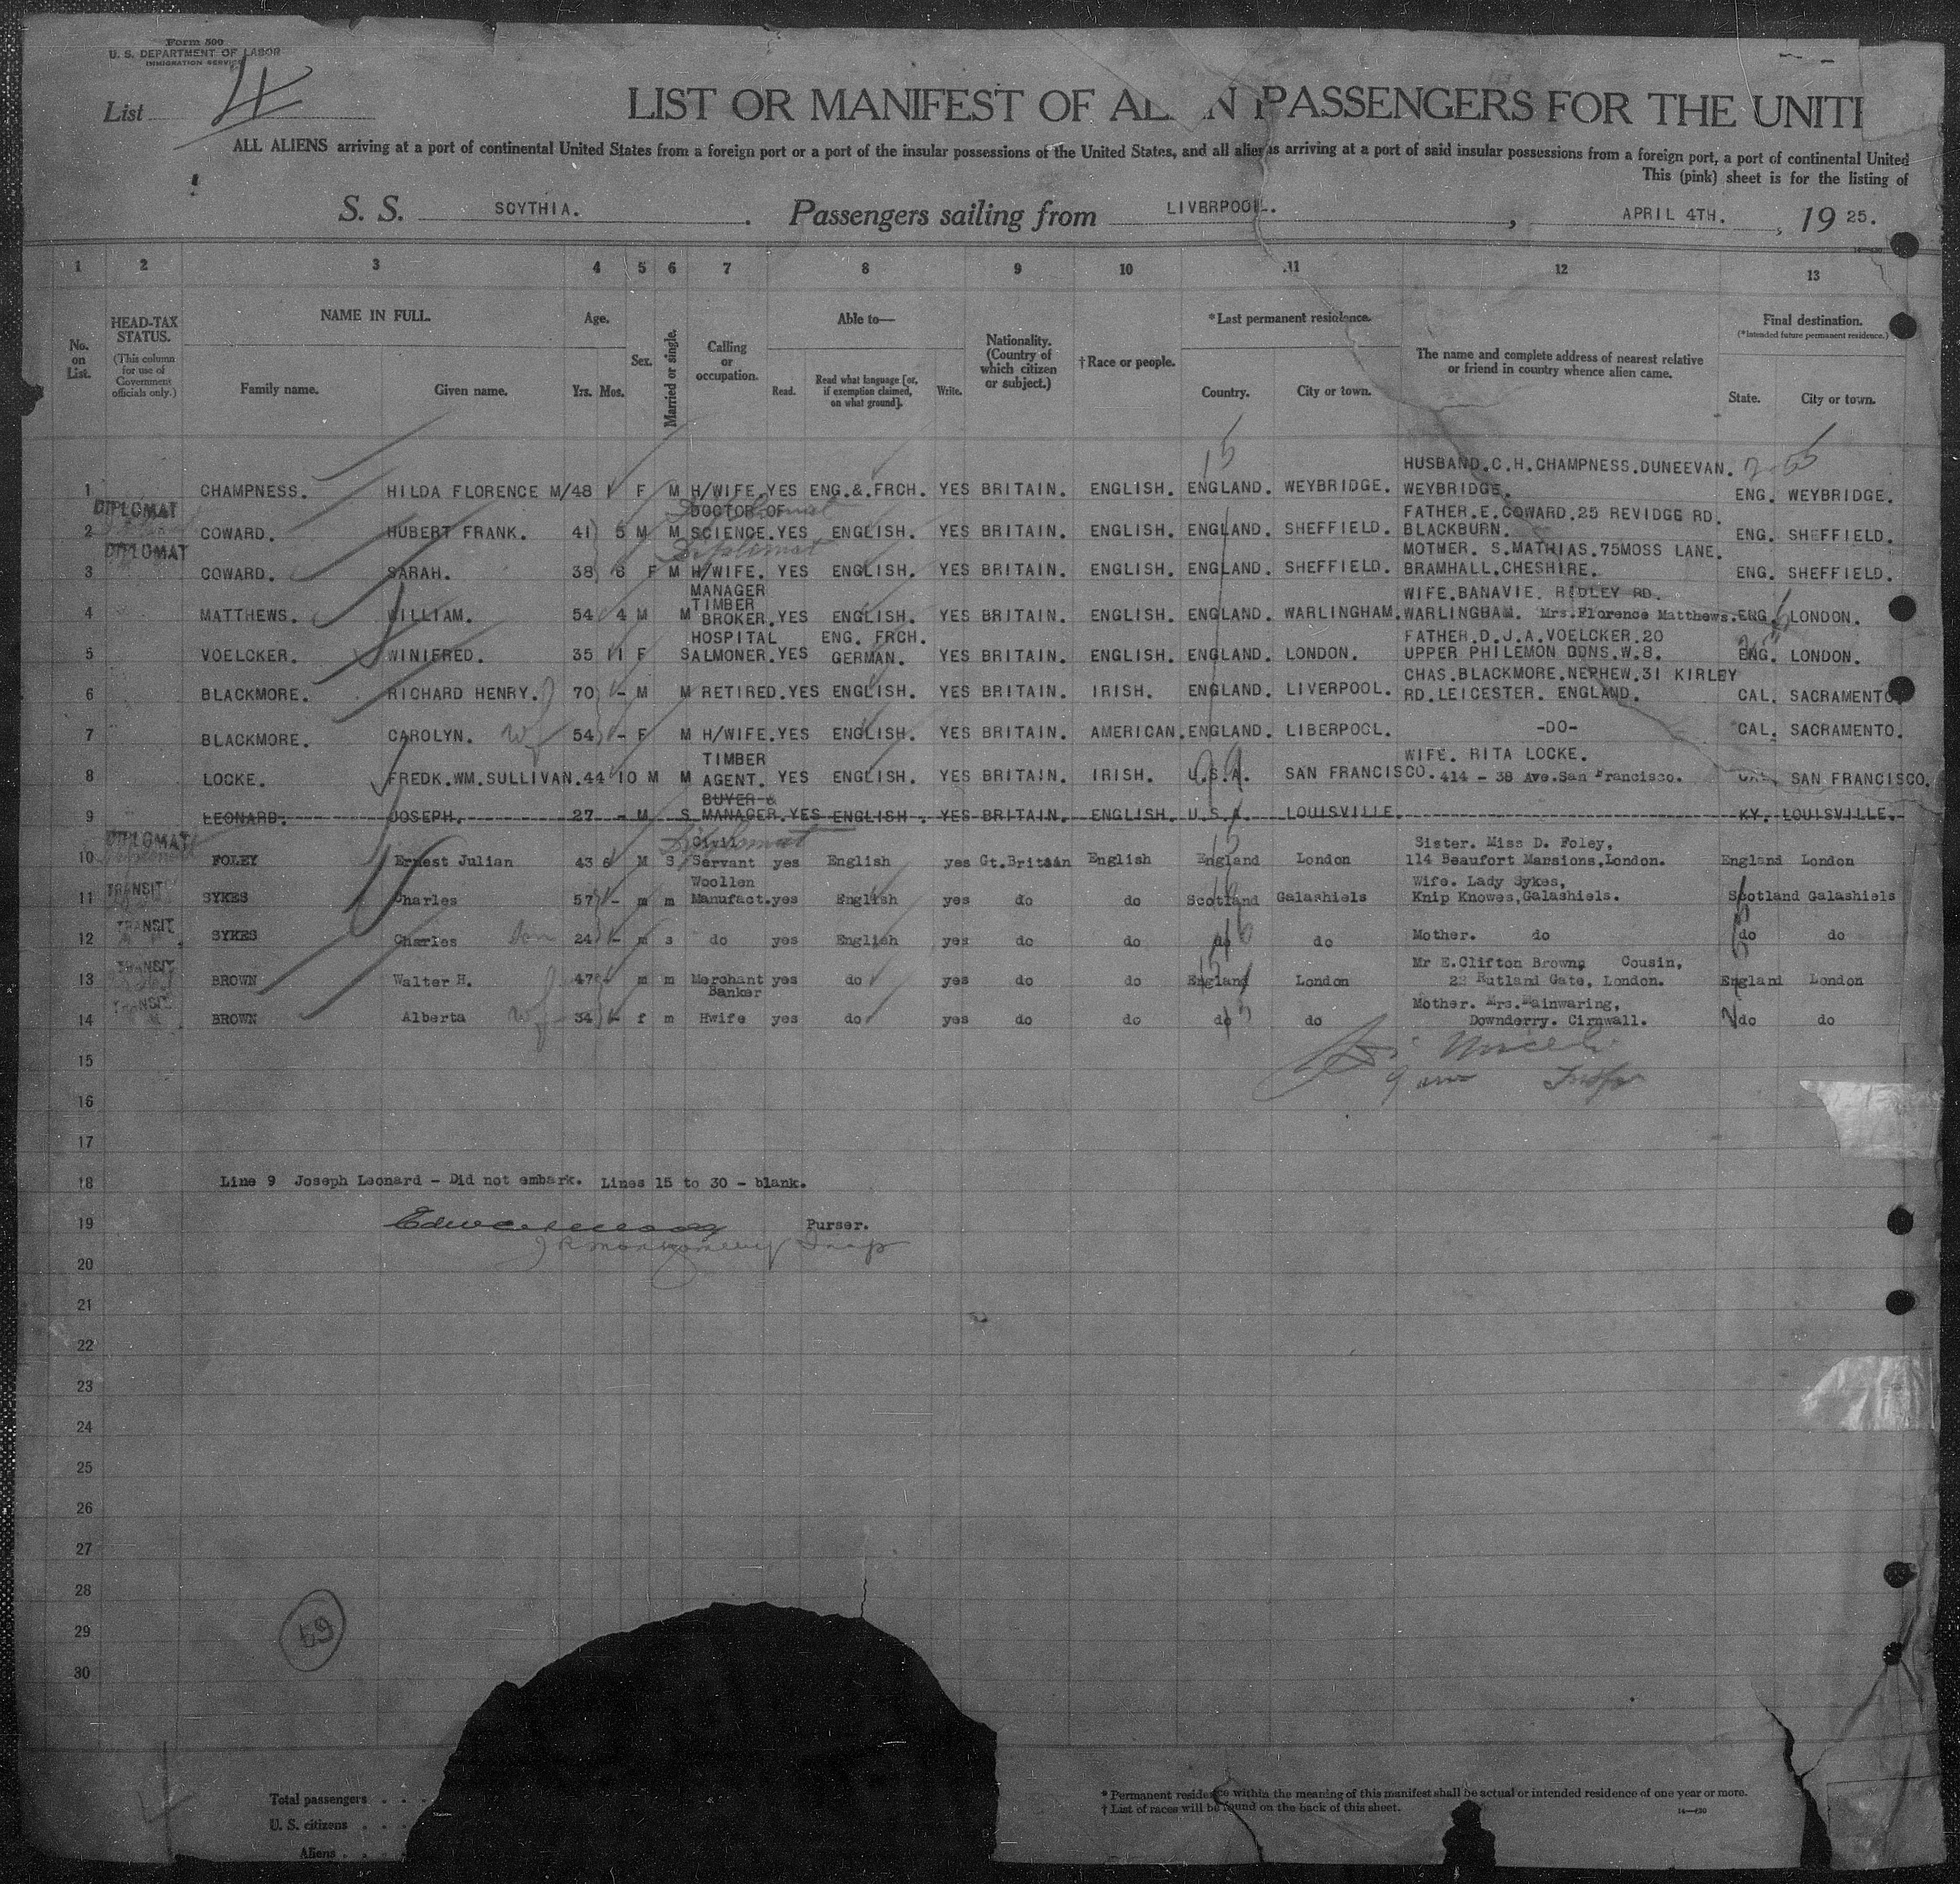 Form 500
U. S. DEPARTMENT OF LABOR
IMMIGRATION SERVICE
List 4
LIST OR MANIFEST OF AL N PASSENGERS FOR THE UNITI
ALL ALIENS arriving at a port of continental United States from a foreign port or a port of the insular possessions of the United States, and all aliens arriving at a port of said insular possessions from a foreign port, a port of continental United
This (pink) sheet is for the listing of
S. S. SCYTHIA. Passengers sailing from LIVERPOOL. , APRIL 4TH. , 19 25.
1 2 3 4 5 6 7 8 9 10 11 12 13
No. on List.
HEAD-TAX STATUS.
(This column for use of Government officials only.)
NAME IN FULL.
Family name. Given name.
Age.
Yrs. Mos.
Sex.
Married or single.
Calling or occupation.
Able to—
Read. Read what language [or, if exemption claimed, on what ground]. Write.
Nationality. (Country of which citizen or subject.)
†Race or people.
*Last permanent residence.
Country. City or town.
The name and complete address of nearest relative or friend in country whence alien came.
Final destination.
(*Intended future permanent residence.)
State. City or town.
15
HUSBAND.C.H.CHAMPNESS.DUNEEVAN.
1 CHAMPNESS. HILDA FLORENCE M/48 F M H/WIFE YES ENG.&.FRCH. YES BRITAIN. ENGLISH. ENGLAND. WEYBRIDGE. WEYBRIDGE. ENG. WEYBRIDGE.
DIPLOMAT Diplomat DOCTOR OF FATHER.E.COWARD.25 REVIDGE RD.
2 COWARD. HUBERT FRANK. 41 5 M M SCIENCE.YES ENGLISH. YES BRITAIN. ENGLISH. ENGLAND. SHEFFIELD. BLACKBURN. ENG. SHEFFIELD.
DIPLOMAT Diplomat MOTHER. S.MATHIAS.75MOSS LANE.
3 COWARD. SARAH. 38 8 F M H/WIFE. YES ENGLISH. YES BRITAIN. ENGLISH. ENGLAND. SHEFFIELD. BRAMHALL.CHESHIRE. ENG. SHEFFIELD.
MANAGER TIMBER WIFE.BANAVIE. RIDLEY RD.
4 MATTHEWS. WILLIAM. 54 4 M M BROKER.YES ENGLISH. YES BRITAIN. ENGLISH. ENGLAND. WARLINGHAM. WARLINGHAM. Mrs.Florence Matthews. ENG. LONDON.
HOSPITAL ENG. FRCH. FATHER.D.J.A.VOELCKER.20
5 VOELCKER. WINIFRED. 35 11 F S ALMONER.YES GERMAN. YES BRITAIN. ENGLISH. ENGLAND. LONDON. UPPER PHILEMON GDNS.W.8. ENG. LONDON.
CHAS.BLACKMORE.NEPHEW.31 KIRLEY
6 BLACKMORE. RICHARD HENRY. 70 - M M RETIRED.YES ENGLISH. YES BRITAIN. IRISH. ENGLAND. LIVERPOOL. RD.LEICESTER. ENGLAND. CAL. SACRAMENTO
7 BLACKMORE. CAROLYN. wf 54 - F M H/WIFE.YES ENGLISH. YES BRITAIN. AMERICAN. ENGLAND. LIBERPOCL. -DO- CAL. SACRAMENTO.
TIMBER WIFE. RITA LOCKE.
8 LOCKE. FREDK.WM.SULLIVAN. 44 10 M M AGENT. YES ENGLISH. YES BRITAIN. IRISH. U.S.A. SAN FRANCISCO. 414 - 38 Ave.San Francisco. CAL. SAN FRANCISCO.
BUYER &
9 LEONARD. JOSEPH. 27 - M S MANAGER.YES ENGLISH. YES BRITAIN. ENGLISH. U.S.A. LOUISVILLE. KY. LOUISVILLE.
DIPLOMAT Diplomat Civil Sister. Miss D. Foley,
10 FOLEY Ernest Julian 43 6 M S Servant yes English yes Gt.Britain English England London 114 Beaufort Mansions,London. England London
TRANSIT Woollen Wife. Lady Sykes,
11 SYKES Charles 57 - m m Manufact.yes English yes do do Scotland Galashiels Knip Knowes,Galashiels. Scotland Galashiels
TRANSIT
12 SYKES Charles Son 24 - m s do yes English yes do do do do Mother. do do do
TRANSIT Mr E.Clifton Brown, Cousin,
13 BROWN Walter H. 47 - m m Merchant Banker yes do yes do do England London 22 Rutland Gate, London. England London
TRANSIT Mother. Mrs.Mainwaring,
14 BROWN Alberta wf 34 - f m Hwife yes do yes do do do do Downderry. Cirnwall. do do
15
16
17
18 Line 9 Joseph Leonard - Did not embark. Lines 15 to 30 - blank.
19 Purser.
20
21
22
23
24
25
26
27
28
29 59
30
4
Total passengers . . .
U. S. citizens . . .
Aliens . . .
* Permanent residence within the meaning of this manifest shall be actual or intended residence of one year or more.
† List of races will be found on the back of this sheet.
14—430